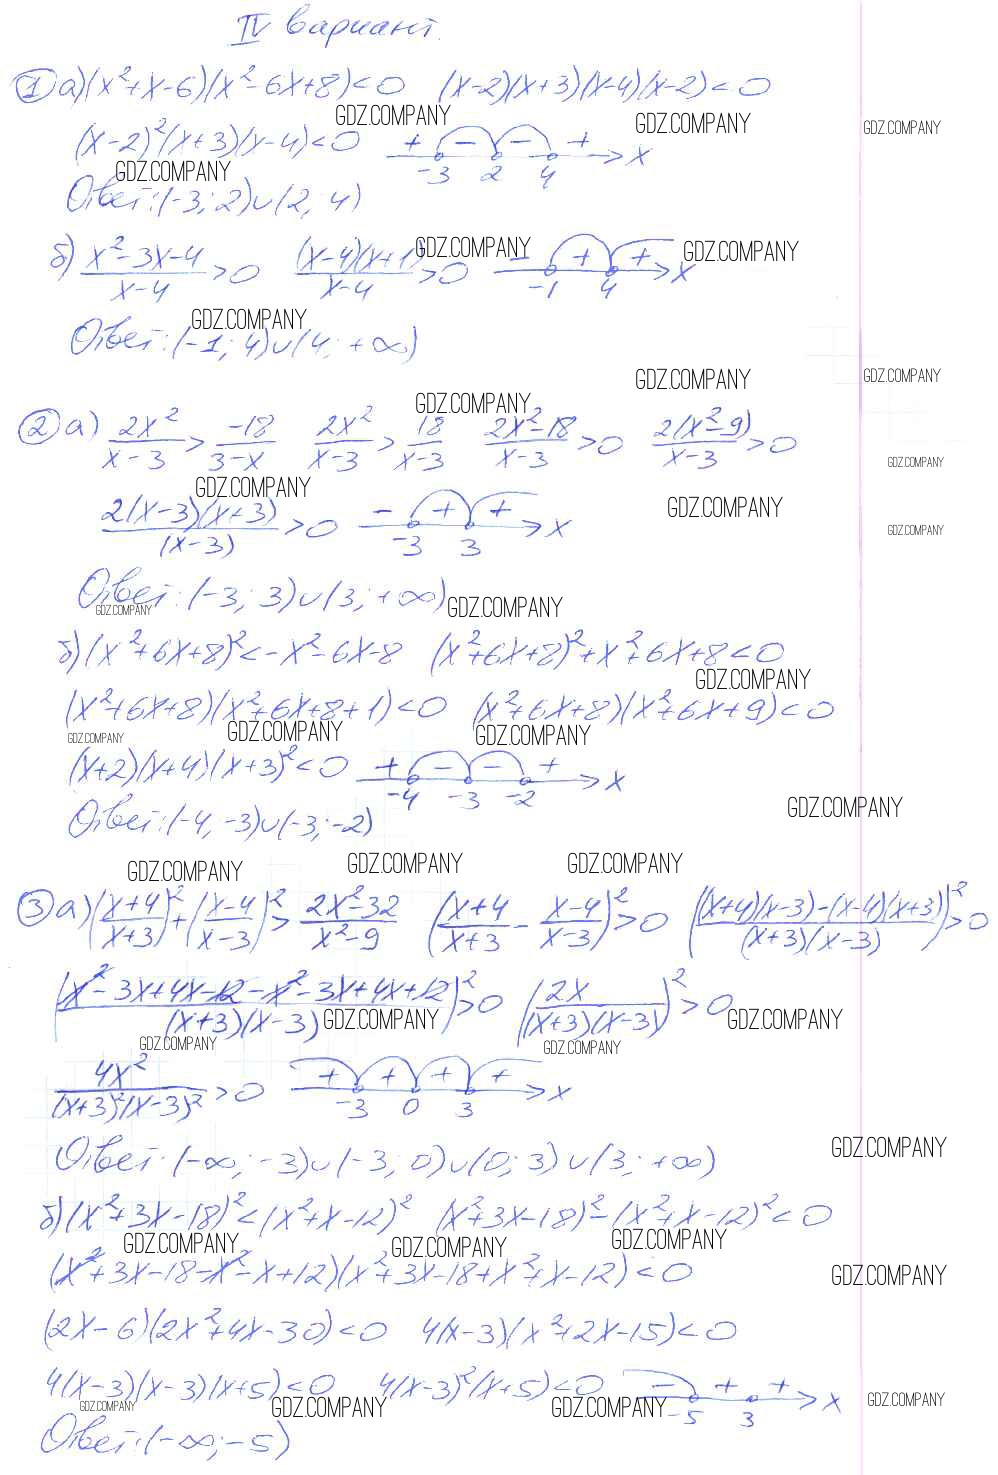 IV вариант.
① а) (x²+x-6)(x²-6x+8)<0 (x-2)(x+3)(x-4)(x-2)<0
GDZ.COMPANY GDZ.COMPANY GDZ.COMPANY
(x-2)²(x+3)(x-4)<0 + - - + x
-3 2 4
GDZ.COMPANY
Ответ: (-3; 2)∪(2, 4)
б) (x²-3x-4)/(x-4)>0 ((x-4)(x+1))/(x-4)>0 - + + x
GDZ.COMPANY GDZ.COMPANY
-1 4
GDZ.COMPANY
Ответ: (-1; 4)∪(4; +∞)
GDZ.COMPANY GDZ.COMPANY
GDZ.COMPANY
② а) 2x²/(x-3) > -18/(3-x) 2x²/(x-3) > 18/(x-3) (2x²-18)/(x-3)>0 2(x²-9)/(x-3)>0
GDZ.COMPANY
GDZ.COMPANY GDZ.COMPANY
2(x-3)(x+3)/(x-3)>0 - + + x
-3 3
GDZ.COMPANY
Ответ: (-3; 3)∪(3; +∞)
GDZ.COMPANY GDZ.COMPANY
б) (x²+6x+8)²<-x²-6x-8 (x²+6x+8)²+x²+6x+8<0
GDZ.COMPANY
(x²+6x+8)(x²+6x+8+1)<0 (x²+6x+8)(x²+6x+9)<0
GDZ.COMPANY GDZ.COMPANY GDZ.COMPANY
(x+2)(x+4)(x+3)²<0 + - - + x
-4 -3 -2
GDZ.COMPANY
Ответ: (-4, -3)∪(-3; -2)
GDZ.COMPANY GDZ.COMPANY GDZ.COMPANY
③ а) ((x+4)/(x+3))²+((x-4)/(x-3))²>(2x²-32)/(x²-9) ((x+4)/(x+3) - (x-4)/(x-3))²>0 (((x+4)(x-3)-(x-4)(x+3))/((x+3)(x-3)))²>0
((x²-3x+4x-12-x²-3x+4x+12)/((x+3)(x-3)))²>0 (2x/((x+3)(x-3)))²>0
GDZ.COMPANY GDZ.COMPANY
GDZ.COMPANY GDZ.COMPANY
4x²/((x+3)²(x-3)²)>0 + + + + x
-3 0 3
Ответ: (-∞; -3)∪(-3; 0)∪(0; 3)∪(3; +∞)
GDZ.COMPANY
б) (x²+3x-18)²<(x²+x-12)² (x²+3x-18)²-(x²+x-12)²<0
GDZ.COMPANY GDZ.COMPANY GDZ.COMPANY
(x²+3x-18-x²-x+12)(x²+3x-18+x²+x-12)<0
GDZ.COMPANY
(2x-6)(2x²+4x-30)<0 4(x-3)(x²+2x-15)<0
4(x-3)(x-3)(x+5)<0 4(x-3)²(x+5)<0 - + + x
GDZ.COMPANY GDZ.COMPANY GDZ.COMPANY GDZ.COMPANY
-5 3
Ответ: (-∞; -5)